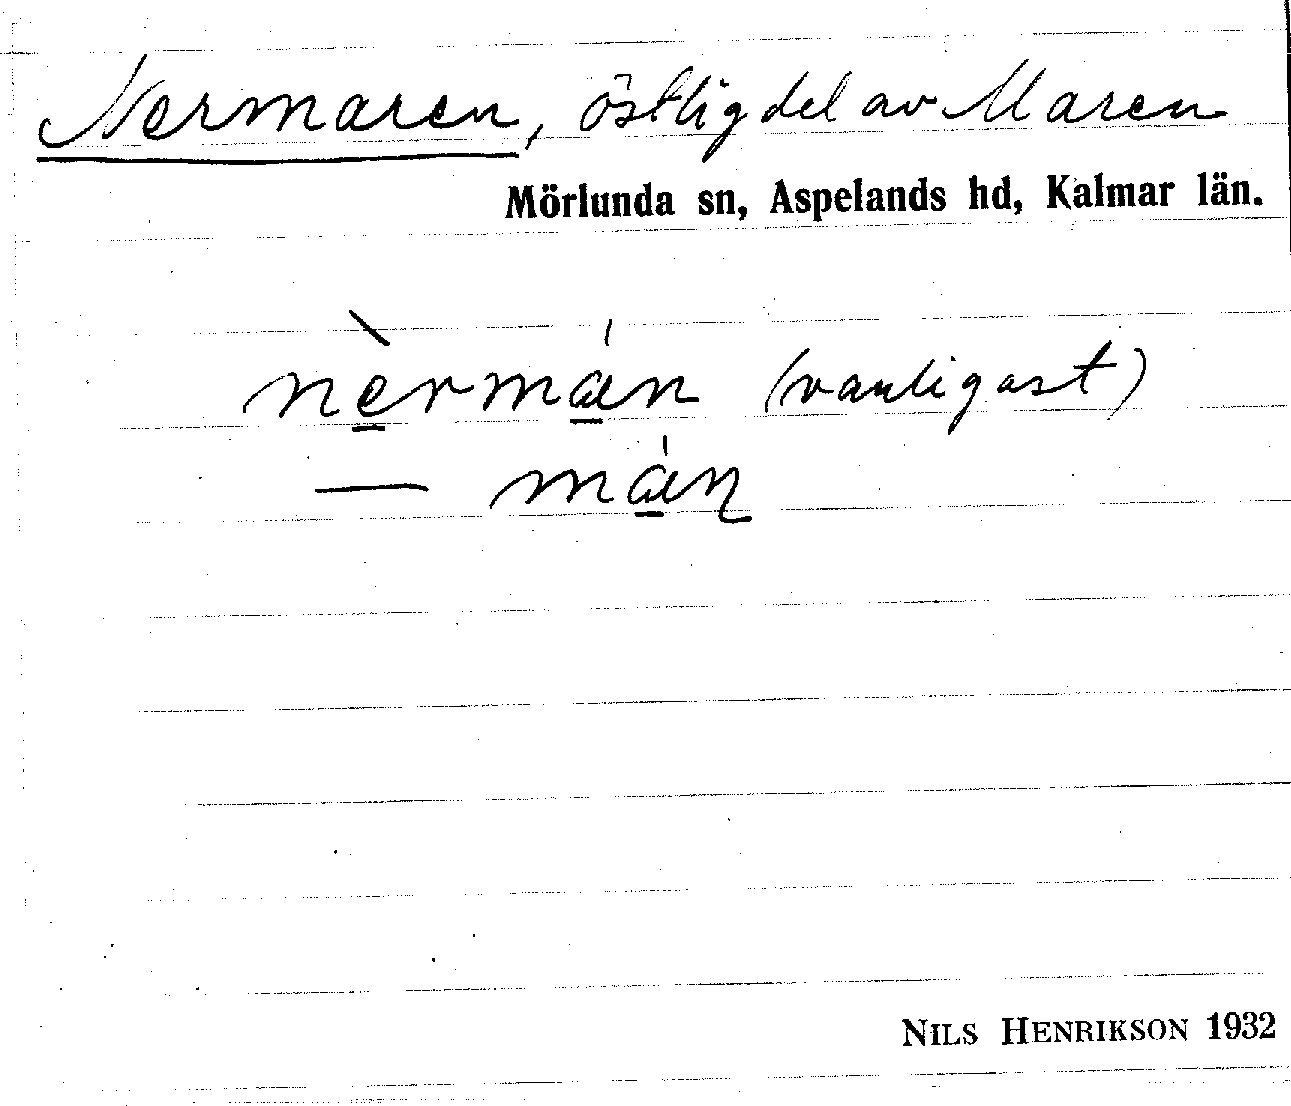 Nermaren, östlig del av Maren
Mörlunda sn, Aspelands hd, Kalmar län.
nèṟmán (vanligast)
— máṉ
NILS HENRIKSON 1932